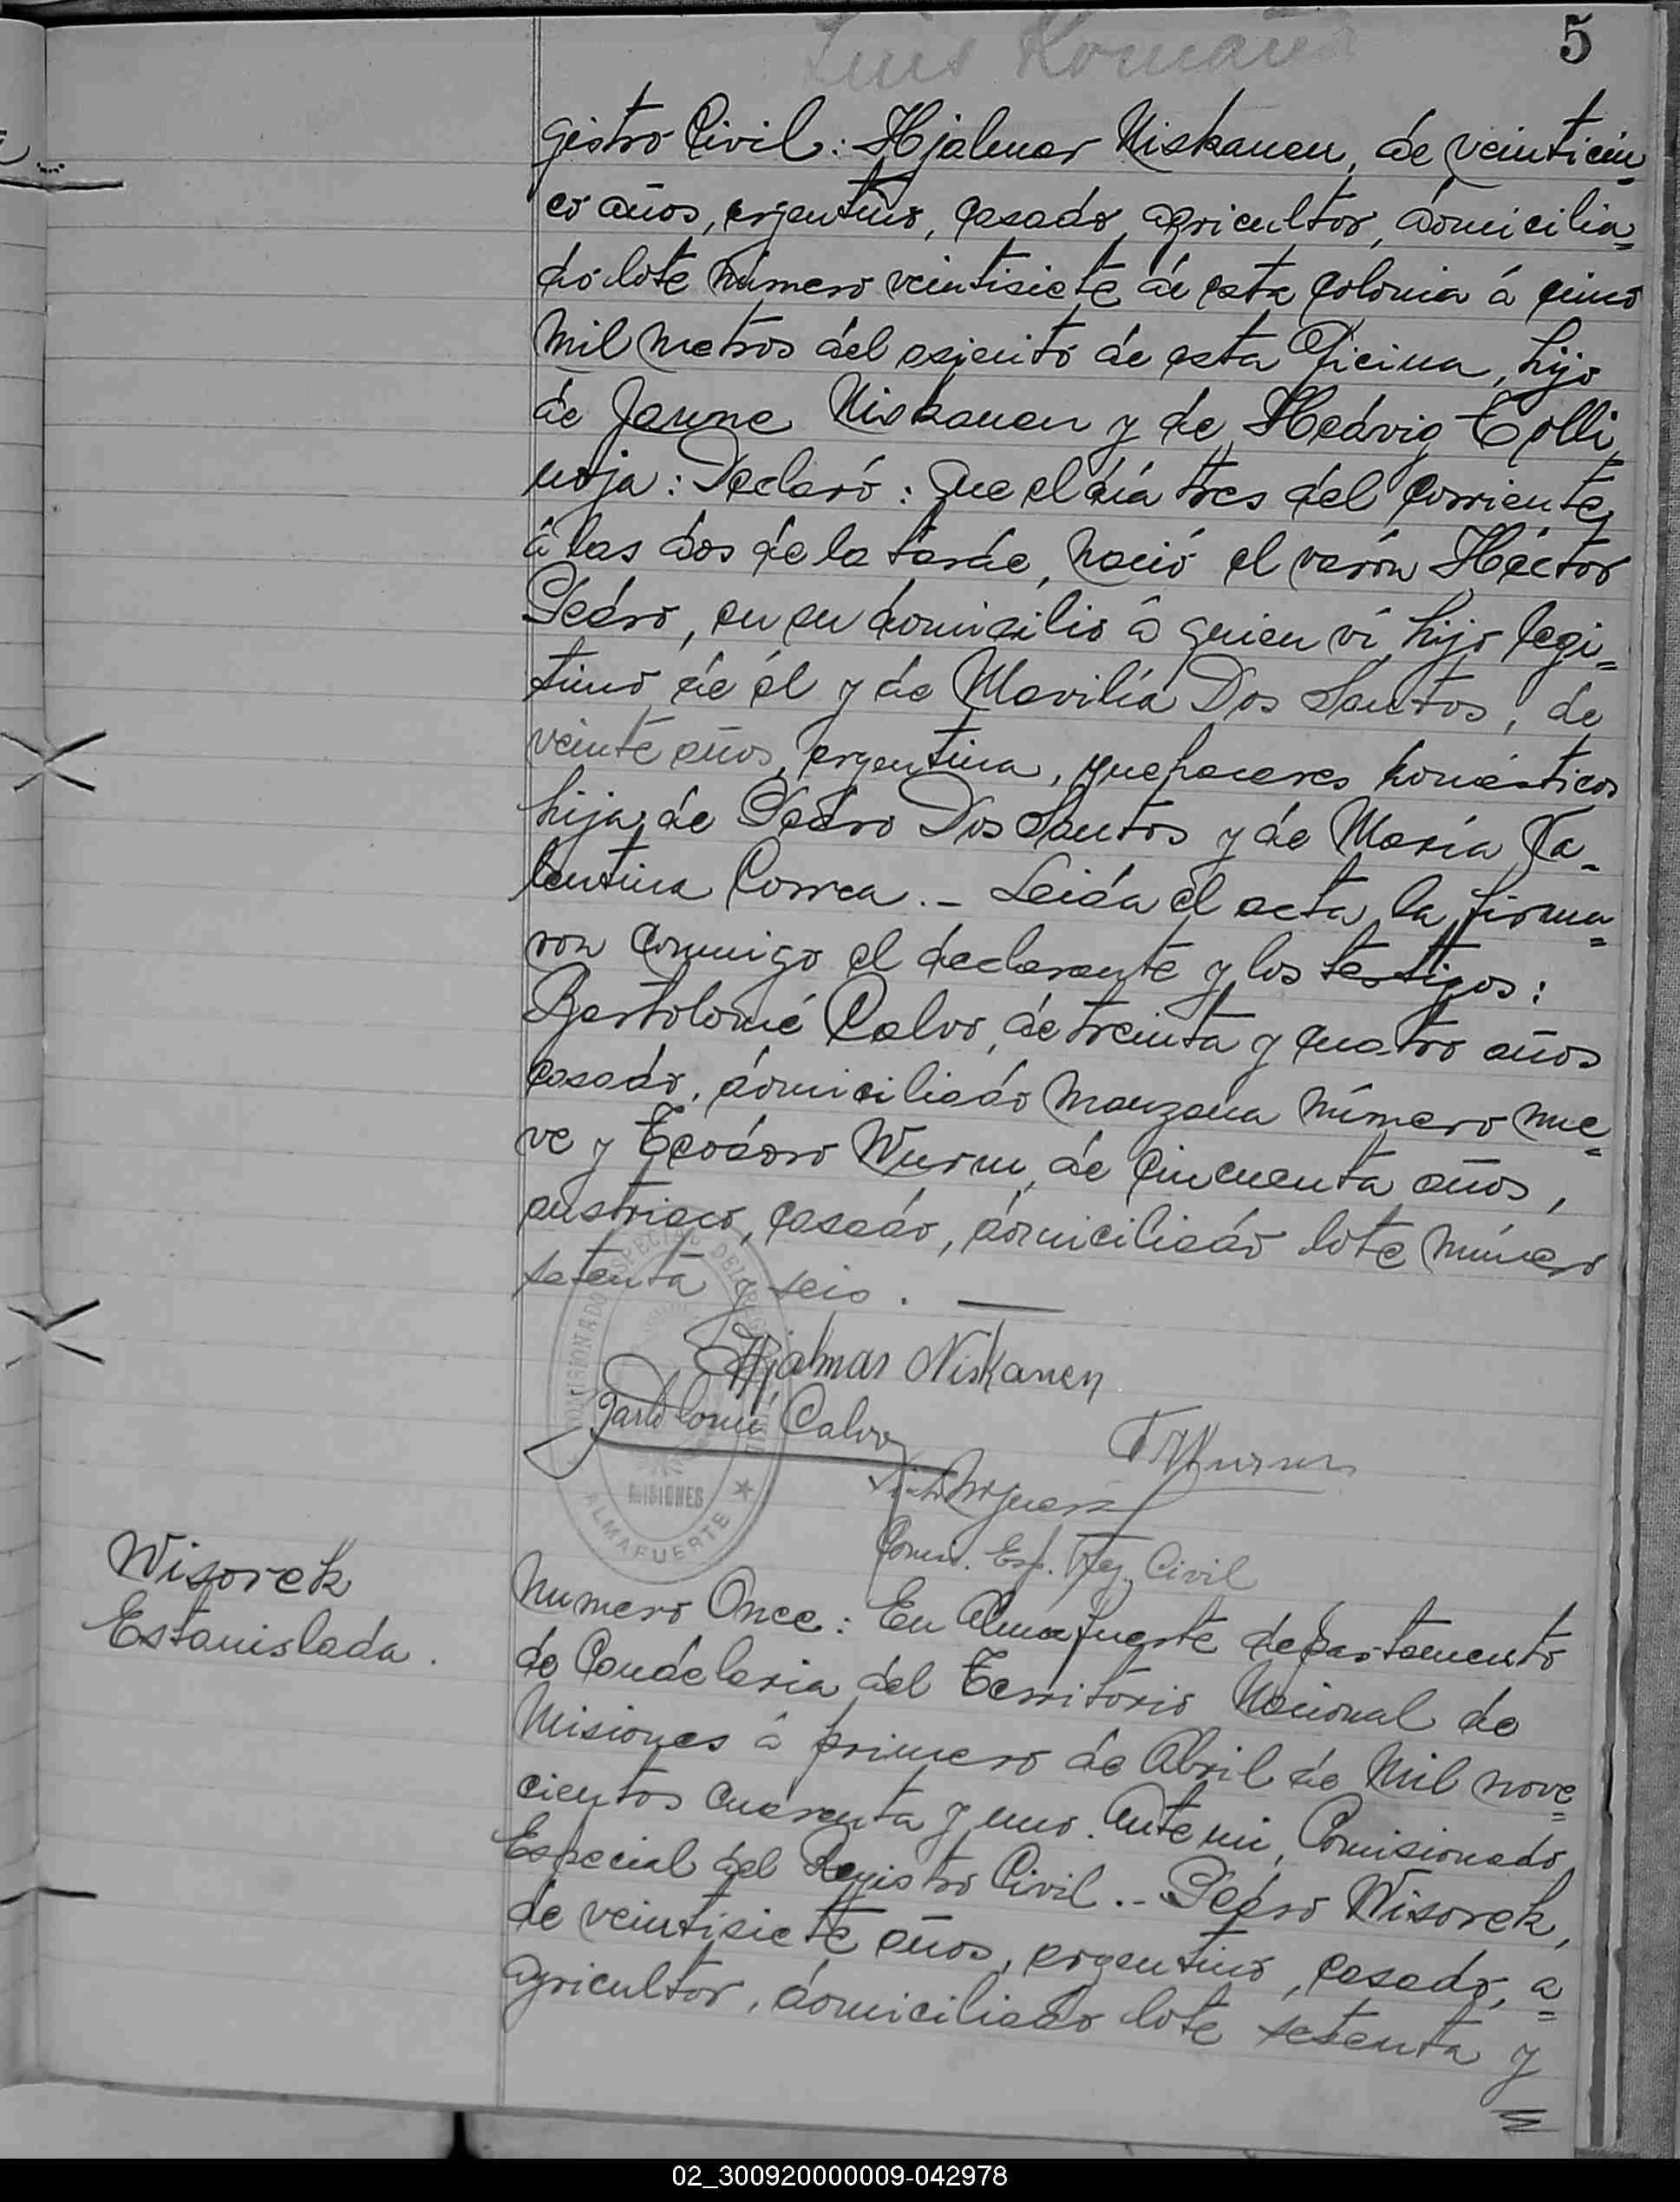 5
Luis Romaña
gistro Civil: Hjalmar Niskanen, de veinticin-
co años, argentino, casado, agricultor, domicilia=
do lote número veintisiete de esta colonia á cinco
mil metros del asiento de esta Oficina, hijo
de Janne Niskanen y de Hedvig Tolli
noja: Declaró: Que el día tres del corriente
á las dos de la tarde, nació el varón Héctor
Pedro, en su domicilio á quien ví hijo legi=
timo de él y de Marilia Dos Santos, de
veinte años, argentina, quehaceres domésticos
hija de Pedro Dos Santos y de María Va-
lentina Correa.- Leida el acta la firma=
ron conmigo el declarante y los testigos:
Bartolomé Calvo, de treinta y cuatro años
casado, domiciliado manzana número nue=
ve y Teodoro Wurm, de cincuenta años,
austriaco, casado, domiciliado lote número
setenta y seis.
COMISIONADO ESPECIAL DEL REGISTRO CIVIL
Hjalmar Niskanen
Bartolomé Calvo
TWurm
MISIONES
ALMAFUERTE
Comis. Esp. Reg. Civil
Wisorek
Estanislada.
Numero Once: En Almafuerte departamento
de Candelaria del Territorio Nacional de
Misiones á primero de Abril de Mil nove=
cientos cuarenta y uno. Ante mi, Comisionado
Especial del Registro Civil.- Pedro Wisorek,
de veintisiete años, argentino, casado, a=
agricultor, domiciliado lote setenta y
02_300920000009-042978